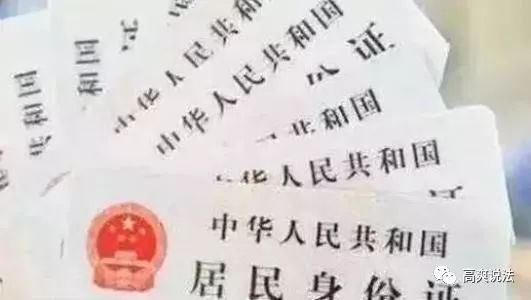 中华人民共和
中华人民共和国
份证
华人民共和国
证
中华人民共和国
居民身份证
高爽说法